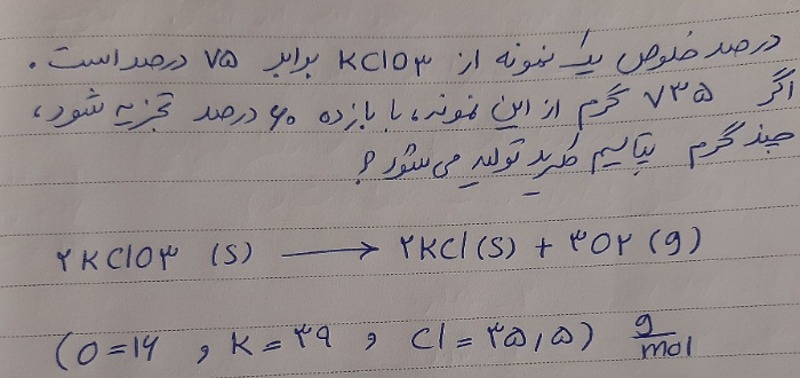 درصد خلوص یک نمونه از KClO۳ برابر ۷۵ درصد است.
اگر ۷۳۵ گرم از این نمونه، با بازده ۶۰ درصد تجزیه شود،
چند گرم پتاسیم کلرید تولید می‌شود؟
۲KClO۳ (s) ⟶ ۲KCl(s) + ۳O۲ (g)
(O=۱۶ , K=۳۹ , Cl=۳۵,۵) g/mol